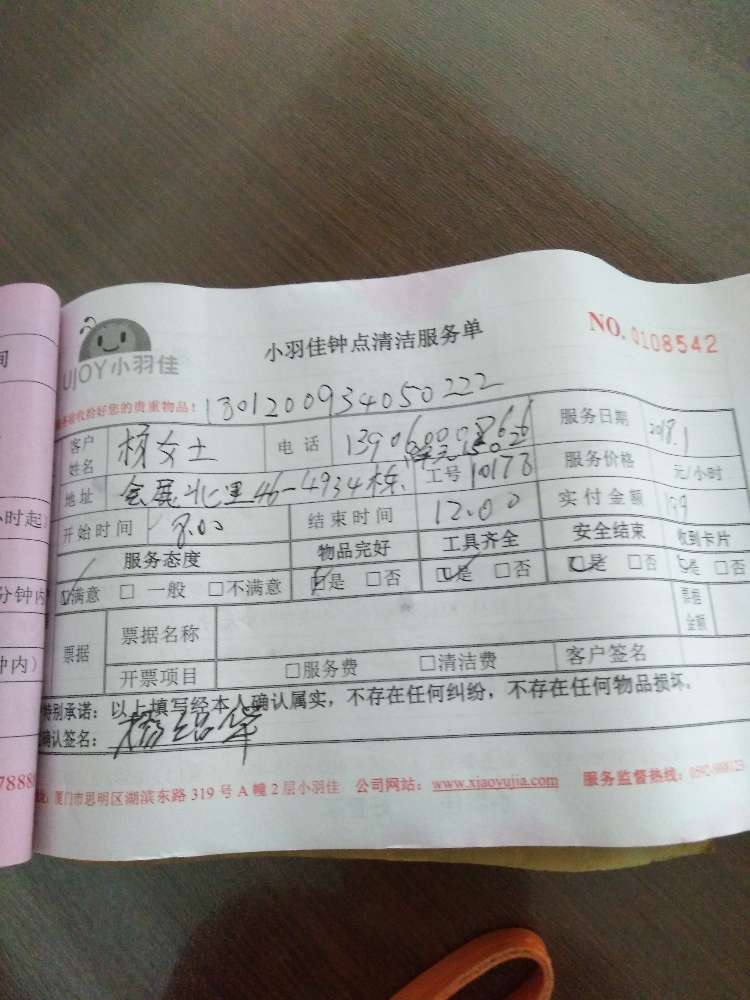 间
UJOY小羽佳
小羽佳钟点清洁服务单
NO. 0108542
收拾好您的贵重物品！
1301200934050222
客户姓名 杨女士 电话 服务日期 2018.1
地址 会展北里46-49 34栋 工号 10173 服务价格 元/小时
开始时间 8.00 结束时间 12.00 实付金额 199
服务态度 物品完好 工具齐全 安全结束 收到卡片
☑满意 □ 一般 □不满意 ☑是 □否 ☑是 □否 ☑是 □否 ☑是 □否
票据 票据名称 票据金额
开票项目 □服务费 □清洁费 客户签名
特别承诺：以上填写经本人确认属实，不存在任何纠纷，不存在任何物品损坏。
确认签名：
厦门市思明区湖滨东路 319 号 A 幢 2 层小羽佳 公司网站：www.xiaoyujia.com 服务监督热线：
小时起
分钟内
钟内）